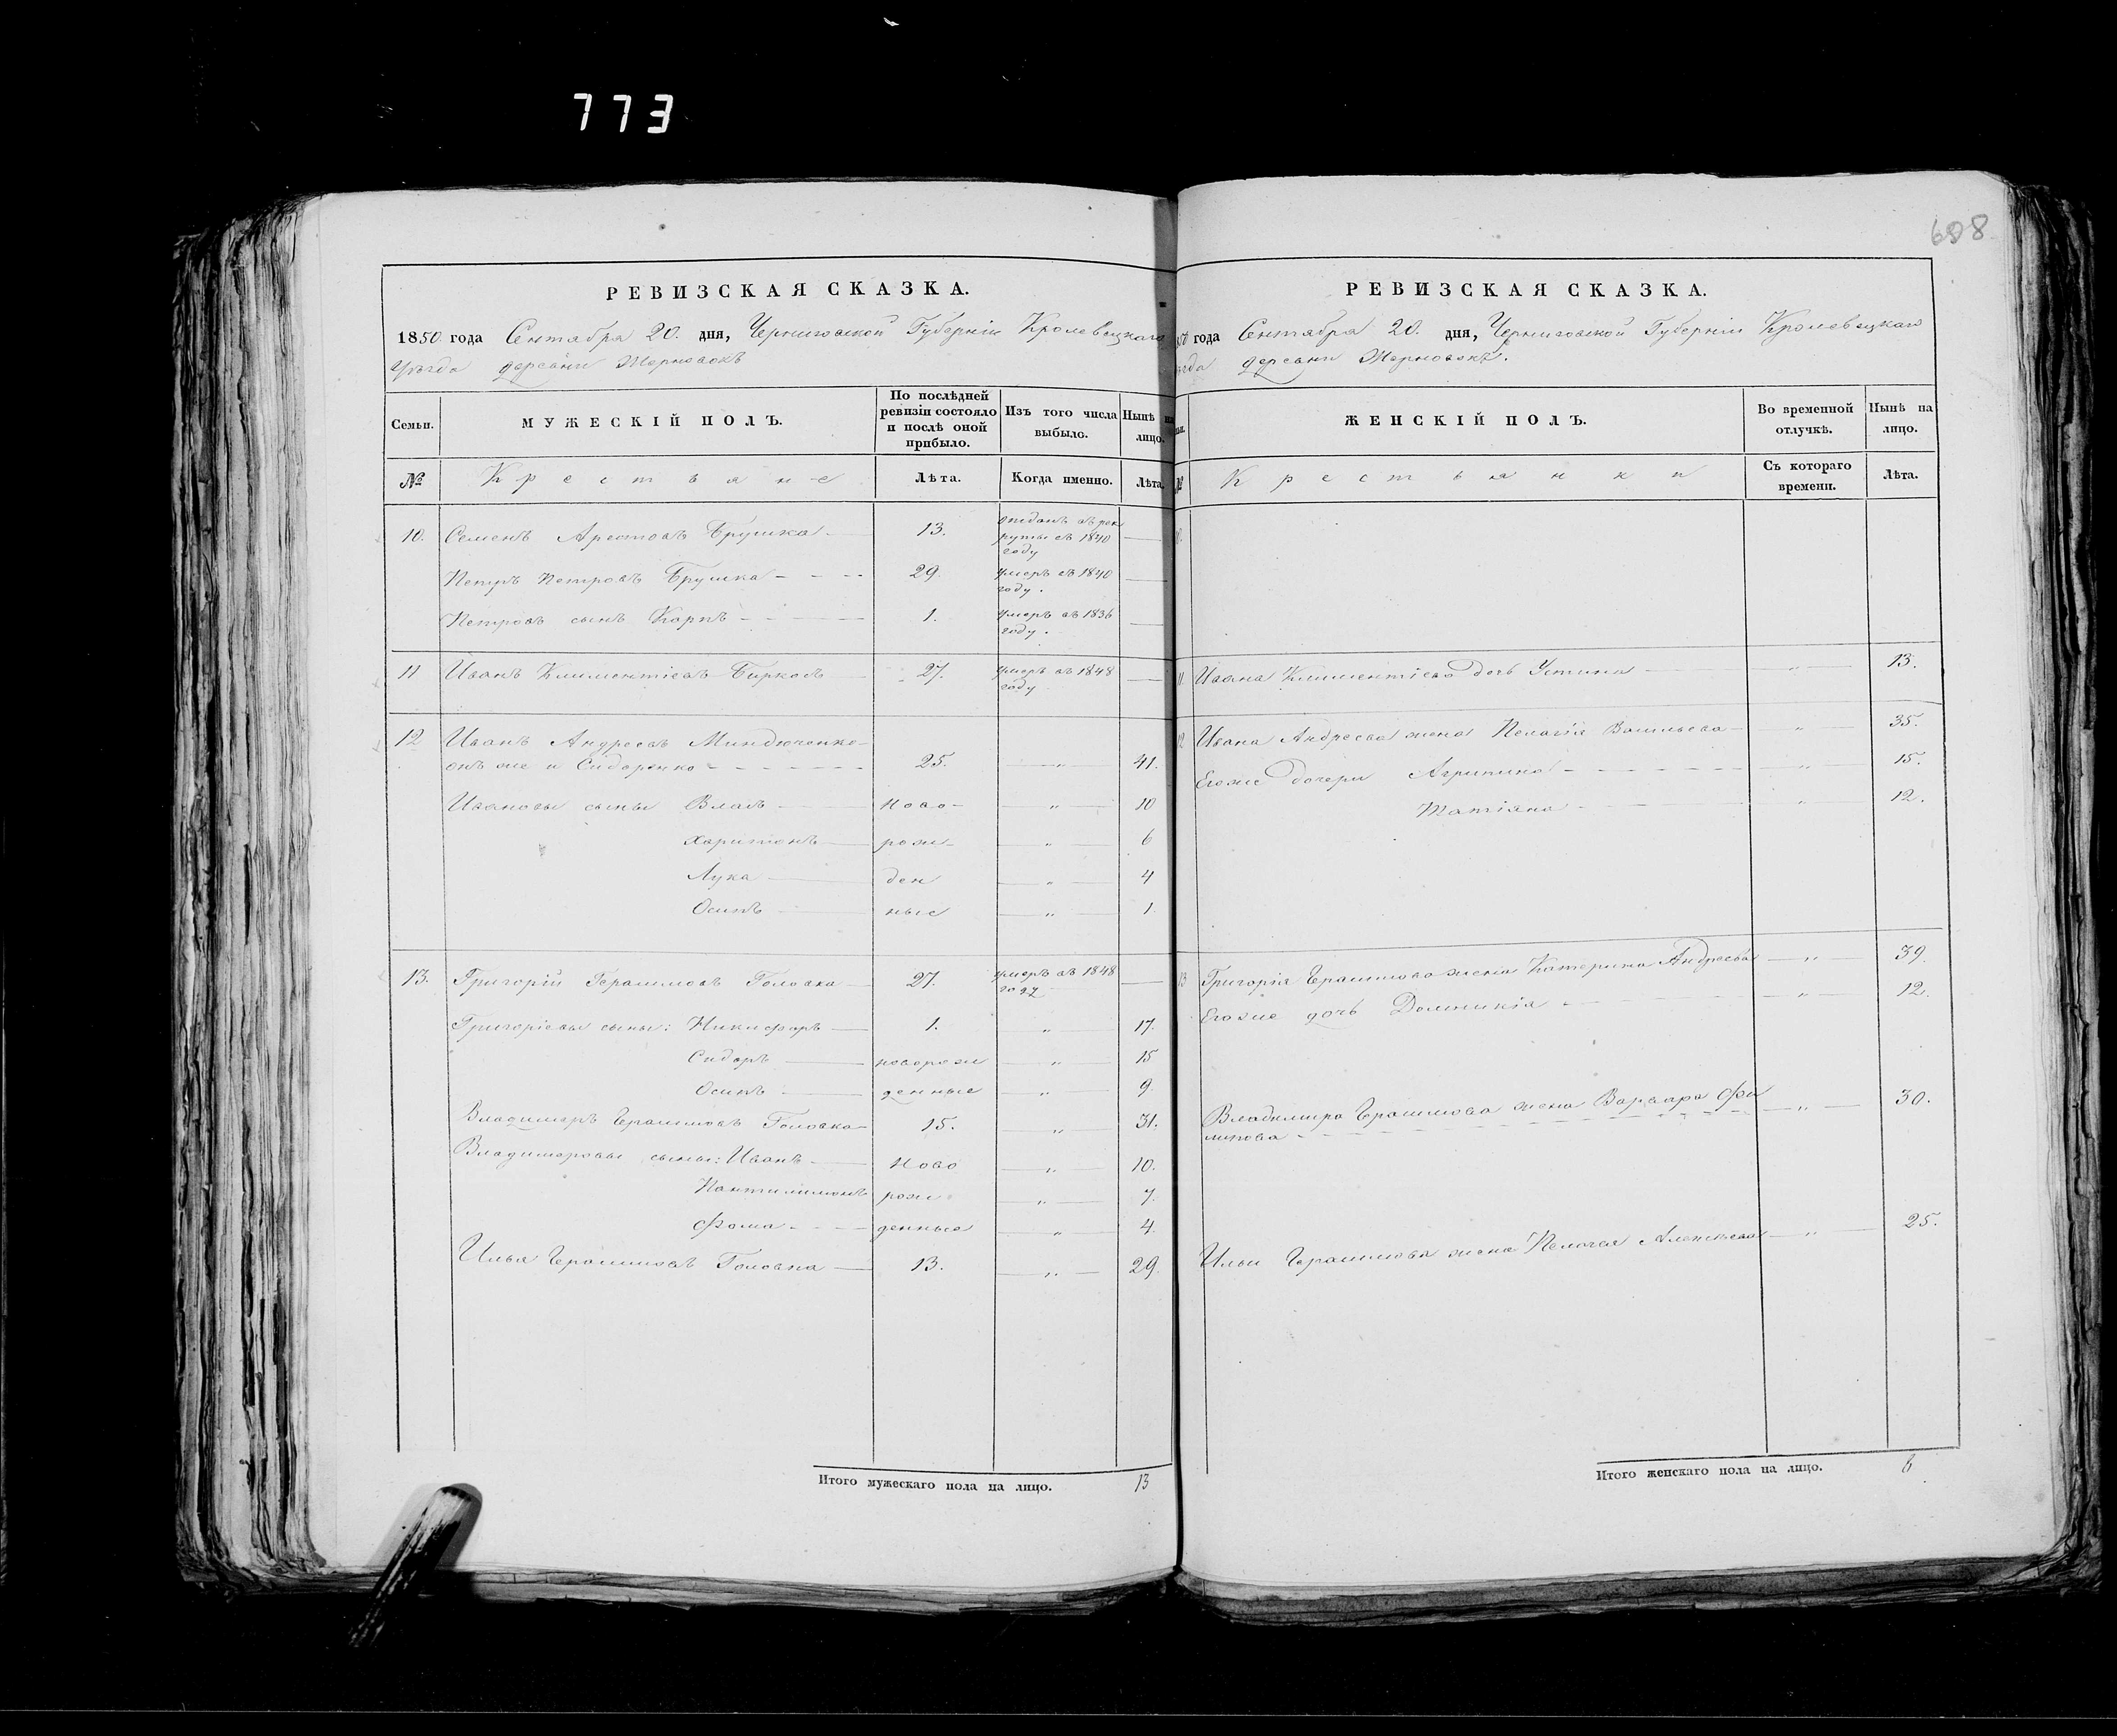 773
698
РЕВИЗСКАЯ СКАЗКА.
1850 года Сентября 20. дня, Черниговской Губерніи Кролевецкаго
Уѣзда деревни Жерновокъ
Семьи.
МУЖЕСКІЙ ПОЛЪ.
По послѣдней ревизіи состояло и послѣ оной прибыло.
Изъ того числа выбыло.
Нынѣ на лицо.
№
Крестьяне
Лѣта.
Когда именно.
Лѣта.
10. Семенъ Арестовъ Брушка 13. отданъ въ рек
руты въ 1840
году
Петръ Петровъ Брушка 29. умеръ въ 1840
году.
Петровъ сынъ Карпъ 1. умеръ въ 1836
году.
11 Иванъ Климентіевъ Бирковъ 27. умеръ въ 1848
году
12 Иванъ Андреевъ Миндюченко
онъ же и Сидоренко 25. " 41.
Ивановы сыны Власъ Ново- " 10
Харитонъ рож- " 6
Лука ден " 4
Осипъ ные " 1
13. Григорій Герасимовъ Головка 27. умеръ въ 1848
году
Григоріевы сыны: Никифоръ 1. " 17.
Сидоръ поворож " 15
Осипъ денные " 9.
Владимеръ Герасимовъ Головка 15. " 31.
Владимеровы сыны: Иванъ Ново " 10.
Пантилимонъ рож " 7.
Фома денные " 4.
Илья Герасимовъ Головка 13. " 29.
Итого мужескаго пола на лицо. 13
РЕВИЗСКАЯ СКАЗКА.
года Сентября 20. дня, Черниговской Губерніи Кролевецкаго
деревни Жерновокъ.
ЖЕНСКІЙ ПОЛЪ.
Во временной отлучкѣ.
Нынѣ на лицо.
№
Крестьянки
Съ котораго времени.
Лѣта.
11 Ивана Климентіева дочь Устина " 13.
12 Ивана Андреева жена Пелагія Васильева " 35.
Егоже дочери Агрипина " 15.
Татіяна " 12.
13 Григорія Герасимова жена Катерина Андреева " 39.
Егоже дочь Домникія " 12.
Владимира Герасимова жена Варвара Фи
липова " 30.
Ильи Герасимова жена Пелагея Алексѣева " 25.
Итого женскаго пола на лицо. 8